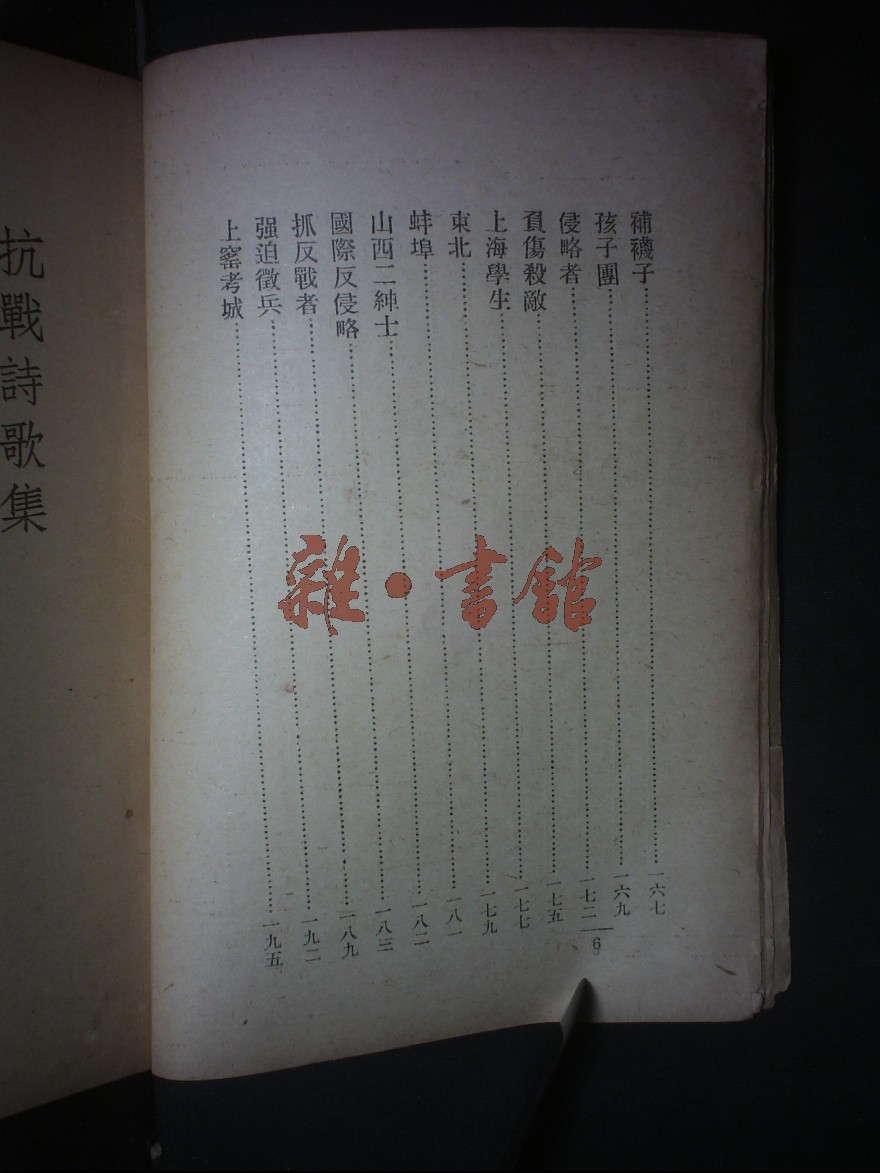 補襪子……一六七
孩子團……一六九
侵略者……一七二
負傷殺敵……一七五
上海學生……一七七
東北……一七九
蚌埠……一八一
山西二紳士……一八二
國際反侵略……一八三
抓反戰者……一八九
强迫徵兵……一九二
上窰考城……一九五
6
雜·書館
抗戰詩歌集